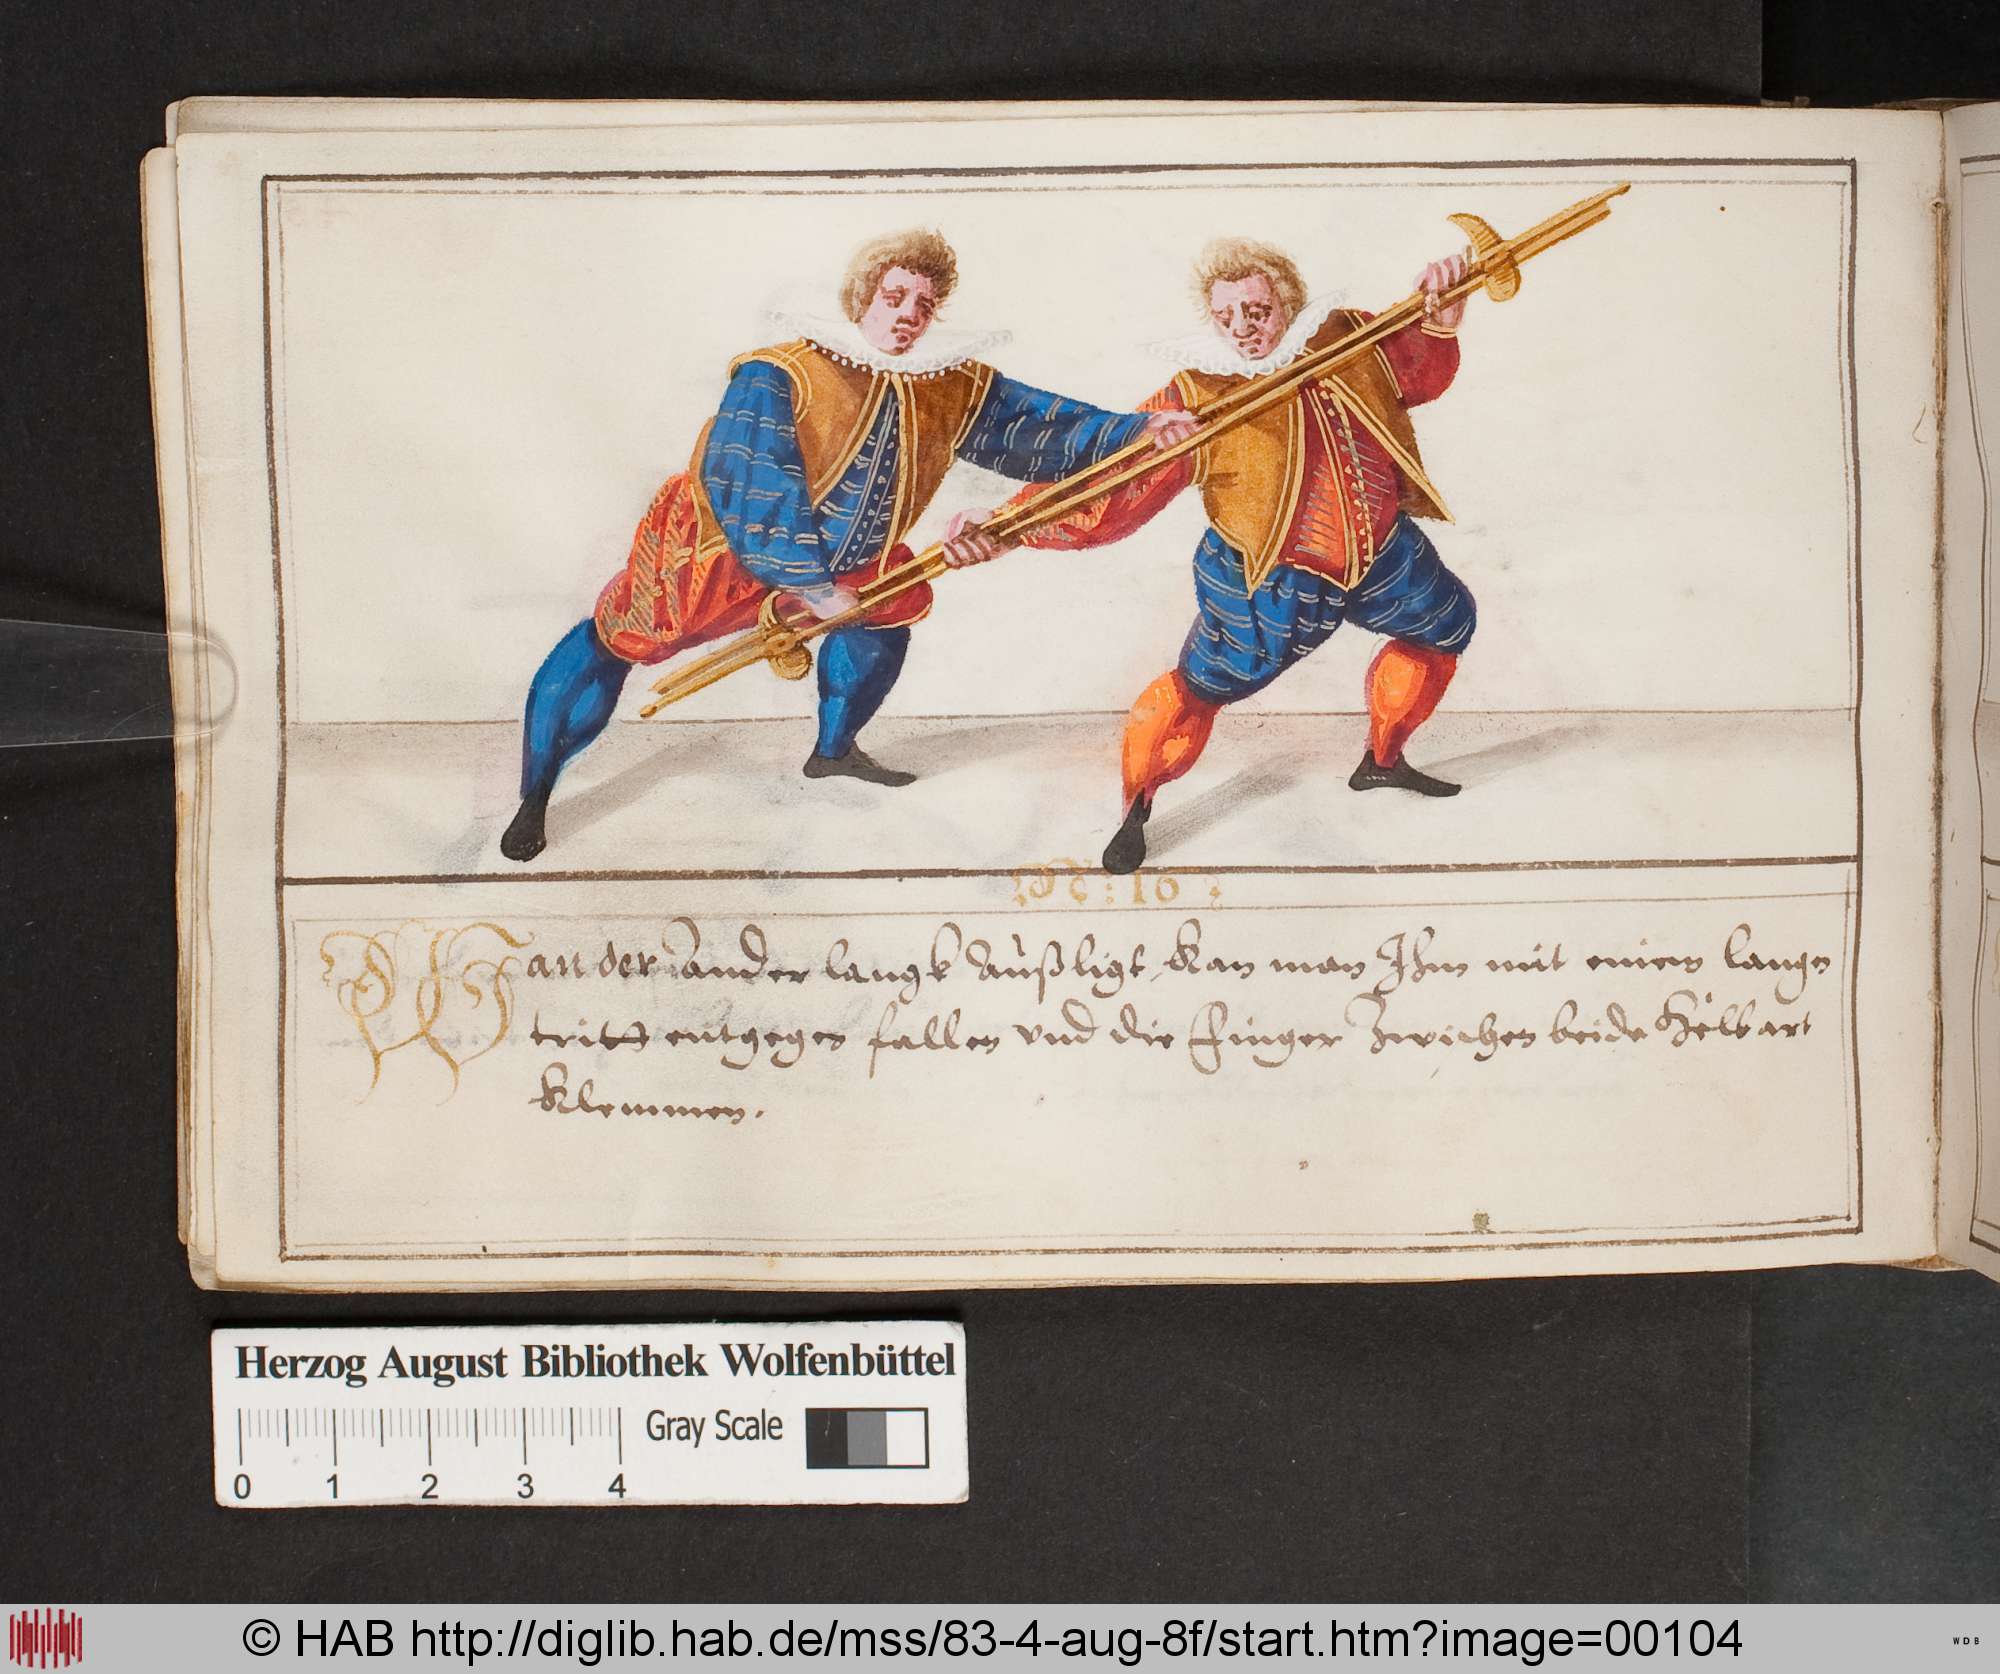 St: 16
Wan der ander langk Außligt, Kan man Ihm mit einen langen
tritt entgegen fallen vnd die Finger Zwischen beide Helbart
Klemmen.
Herzog August Bibliothek Wolfenbüttel
Gray Scale
0 1 2 3 4
© HAB http://diglib.hab.de/mss/83-4-aug-8f/start.htm?image=00104
WDB